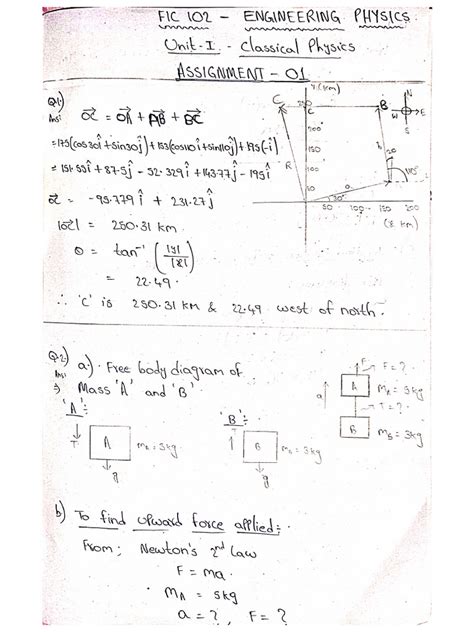 FIC 102 - ENGINEERING PHYSICS
Unit-I - Classical Physics
ASSIGNMENT - 01
Q.1)
Ans:
OC = OA + AB + BC
= 175(cos30î+sin30ĵ)+153(cos110î+sin110ĵ)+195(-î)
= 151.55î + 87.5ĵ - 52.329î + 143.77ĵ - 195î
OC = -95.779î + 231.27ĵ
|OC| = 250.31 km
θ = tan⁻¹ (|y|/|x|)
= 22.49.
∴ 'C' is 250.31 km & 22.49 west of north.
Y (km)
C
250
B
N
W
E
S
200
150
R
b
20
110°
a
30°
50 100 150 200
(x km)
Q.2)
Ans:
a.) Free body diagram of
Mass 'A' and 'B'
'A':
T
A
mA = 5kg
g
'B':
T
B
mB = 3kg
g
F
F = ?
a
A
mA = 5kg
T = ?
B
mB = 3kg
b) To find upward force applied:-
From; Newton's 2nd Law
F = ma.
mA = 5kg
a = ?, F = ?